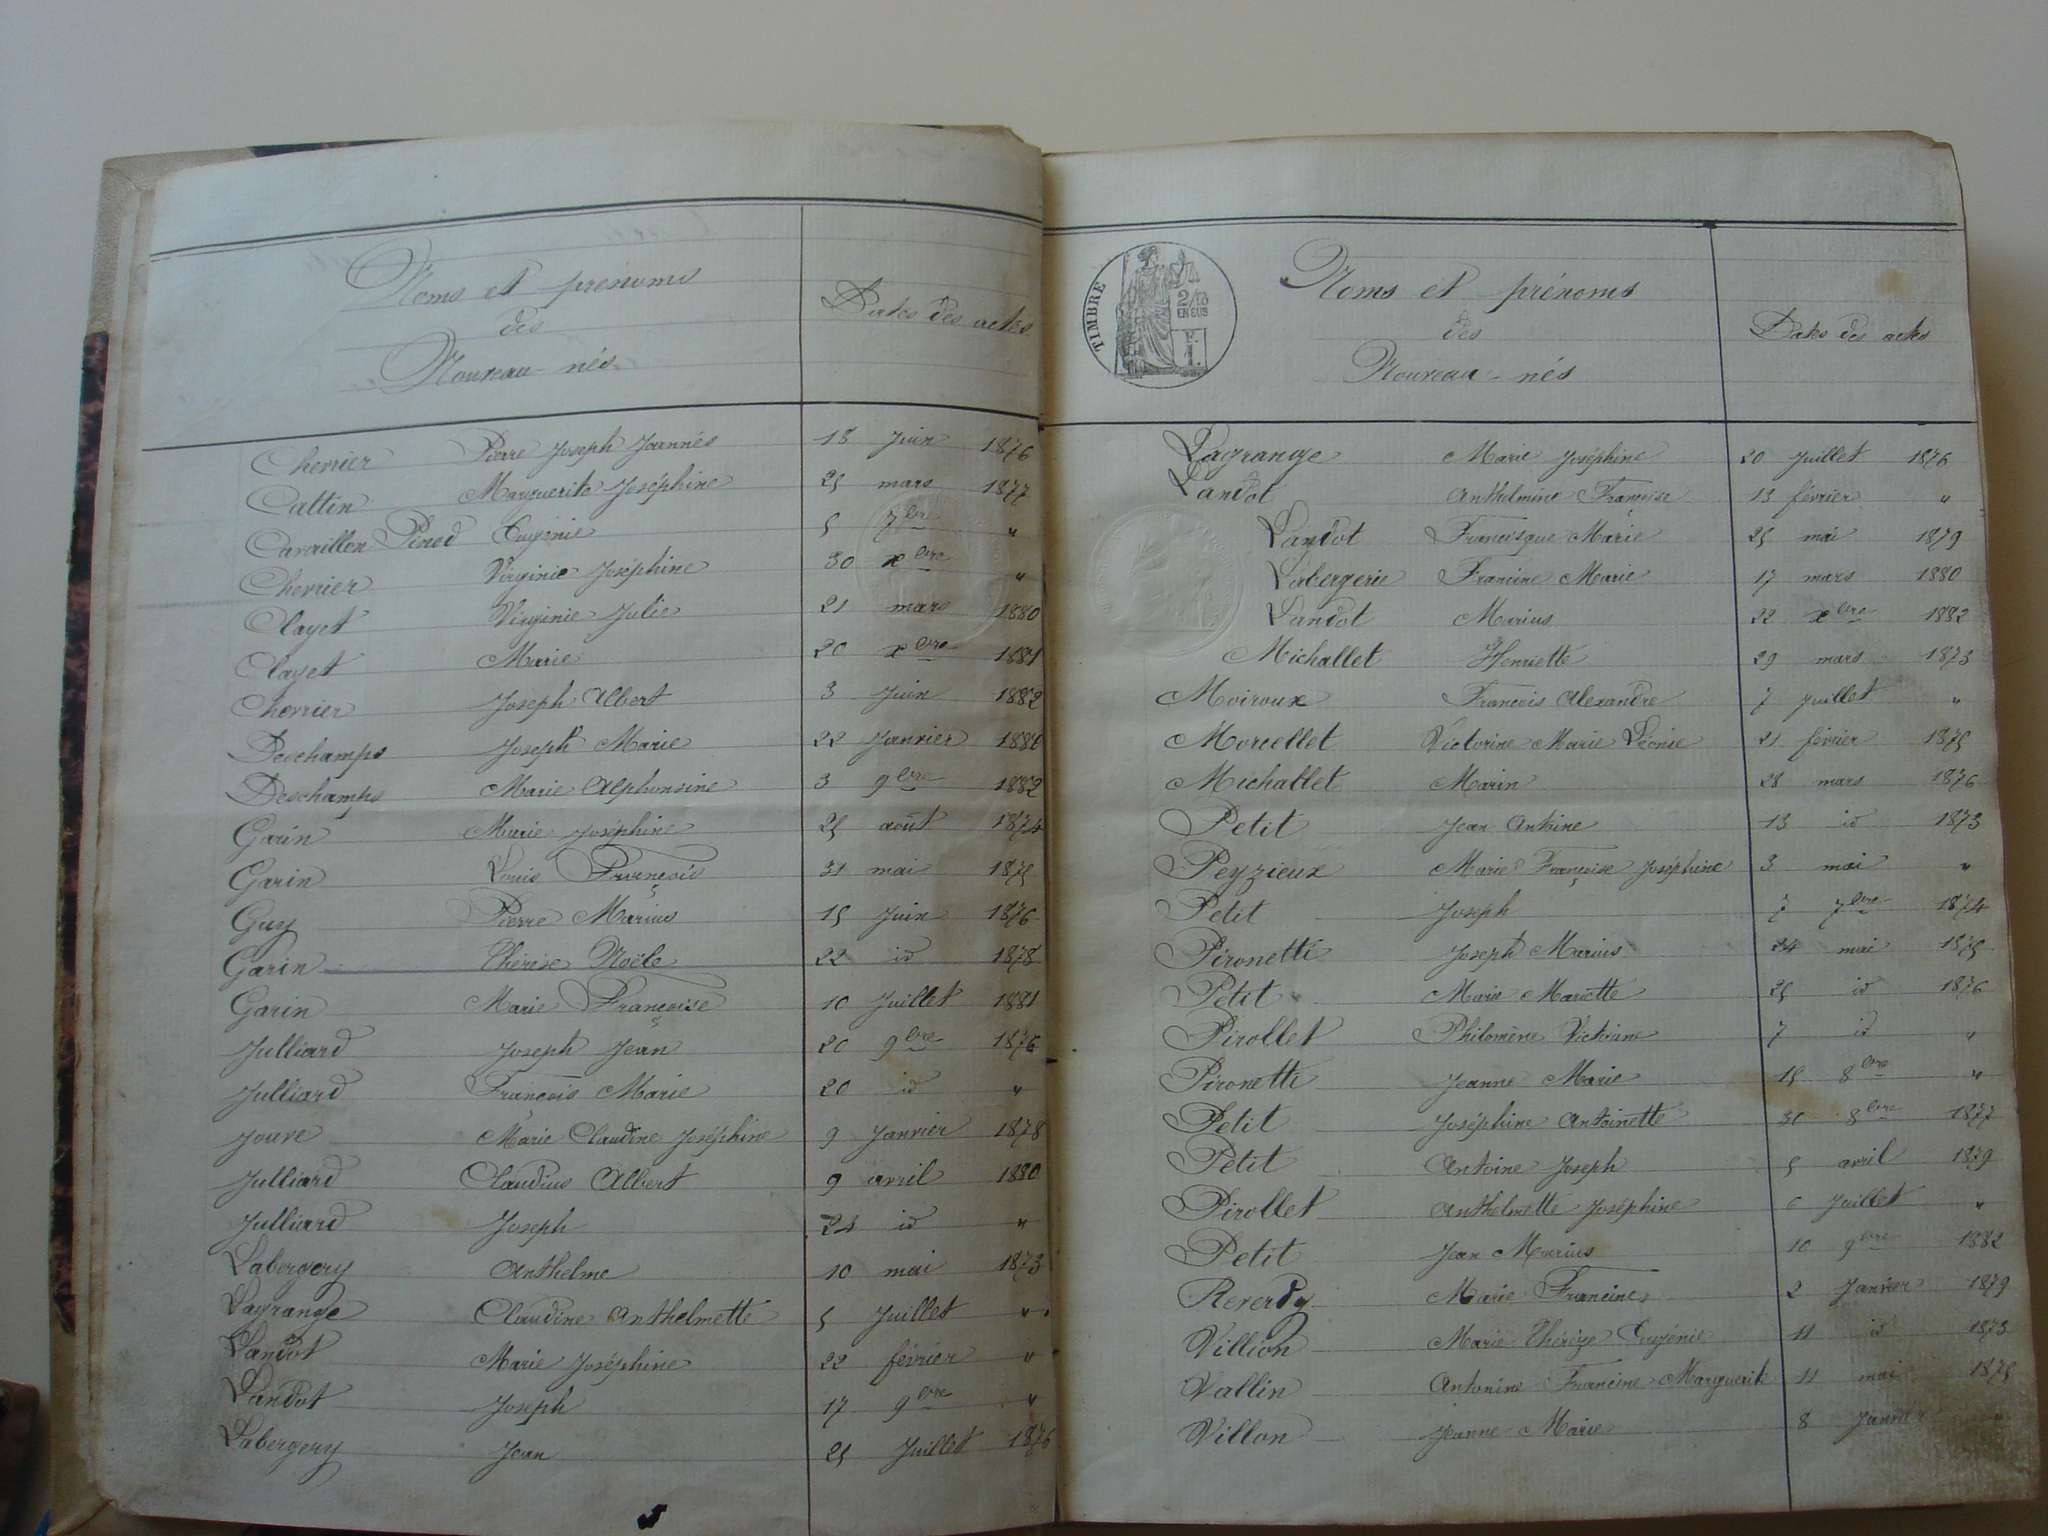 Noms et prénoms
des
Nouveau-nés
Dates des actes
Chevrier Pierre Joseph Joannès 18 Juin 1876
Cattin Marguerite Joséphine 25 mars 1877
Cavaillon Pinod Eugénie 5 7bre "
Chevrier Virginie Joséphine 30 xbre "
Clayet Virginie Julie 21 mars 1880
Clayet Marie 20 xbre 1881
Chevrier Joseph Albert 3 Juin 1882
Deschamps Joseph Marie 22 Janvier
Deschamps Marie Alphonsine 3 9bre 1882
Garin Marie Joséphine 25 août 1874
Garin Louis François 31 mai 1875
Guy Pierre Marius 15 Juin 1876
Garin Thérèse Noële 22 id 1878
Garin Marie Françoise 10 Juillet 1881
Julliard Joseph Jean 20 9bre 1876
Julliard François Marie 20 id "
Jouve Marie Claudine Joséphine 9 Janvier 1878
Julliard Claudius Albert 9 avril 1880
Julliard Joseph 21 id "
Labergery Anthelme 10 mai 1873
Lagrange Claudine Anthelmette 5 Juillet "
Landot Marie Joséphine 22 février "
Landot Joseph 17 9bre "
Labergery Jean 25 Juillet 1876
TIMBRE
2/10
EN SUS
Noms et prénoms
des
Nouveau-nés
Dates des actes
Lagrange Marie Joséphine 20 Juillet 1876
Landot Anthelmine Françoise 13 février "
Landot Francisque Marie 25 mai 1879
Labergerie Francine Marie 17 mars 1880
Landot Marius 22 xbre 1882
Michallet Henriette 29 mars 1873
Moiroux François Alexandre 7 Juillet "
Morcellet Victorine Marie Léonie 21 février 1875
Michallet Marin 28 mars 1876
Petit Jean Antoine 13 id 1873
Peyzieux Marie Françoise Joséphine 3 mai "
Petit Joseph 7 7bre 1874
Pironetti Joseph Marius 24 mai 1875
Petit Marie Mariette 25 id 1876
Pirollet Philomène Victorine 7 id "
Pironetti Jeanne Marie 15 8bre "
Petit Joséphine Antoinette 30 8bre 1877
Petit Antoine Joseph 5 avril 1879
Pirollet Anthelmette Joséphine 6 Juillet "
Petit Jean Marius 10 9bre 1882
Reverdy Marie Francine 2 Janvier 1879
Villion Marie Thérèze Eugénie 11 id 1873
Vallin Antonine Francine Marguerite 11 mai 1875
Villon Jeanne Marie 8 Janvier "